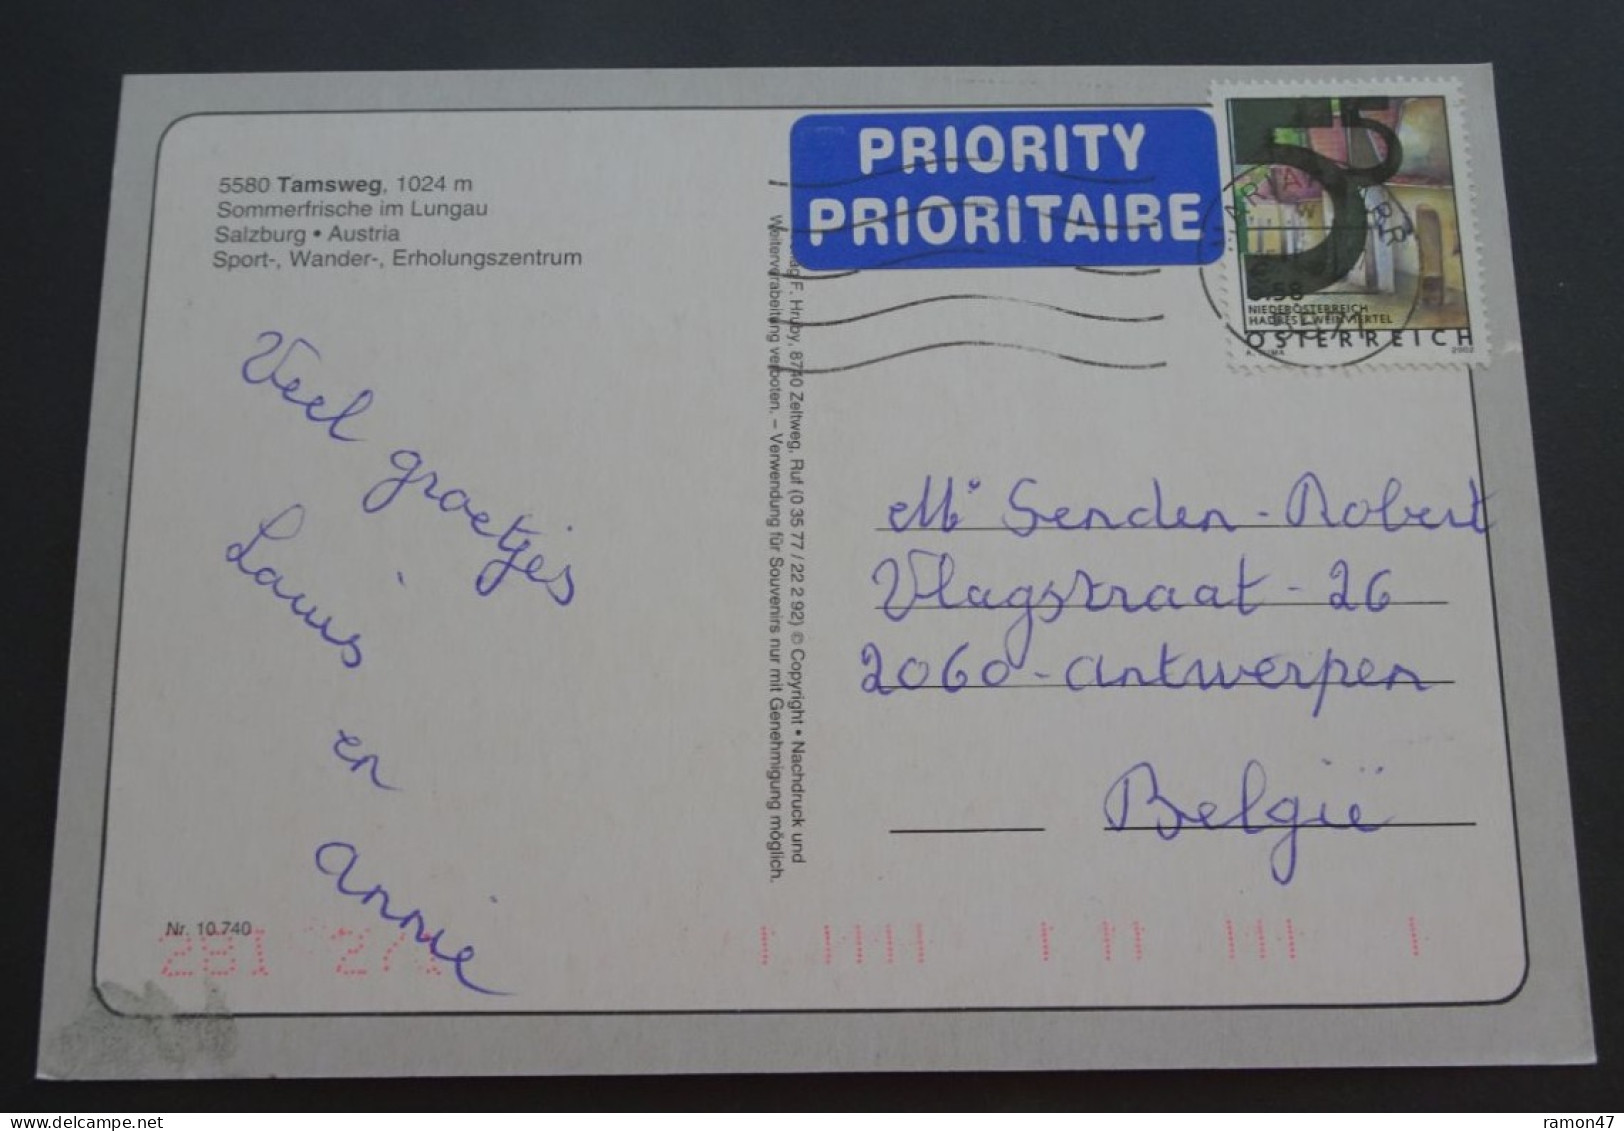 5580 Tamsweg, 1024 m
Sommerfrische im Lungau
Salzburg • Austria
Sport-, Wander-, Erholungszentrum
Veel groetjes
Lawis
en
Annie
Nr. 10.740
281 27
F. Hruby, 8740 Zeltweg, Ruf (0 35 77 / 22 2 92) © Copyright • Nachdruck und
Weiterverarbeitung verboten. – Verwendung für Souvenirs nur mit Genehmigung möglich.
PRIORITY
PRIORITAIRE
55
NIEDERÖSTERREICH
HADRES, WEINVIERTEL
ÖSTERREICH
2002
Mr Senden - Robert
Vlagstraat - 26
2060 - Antwerpen
België
ramon47